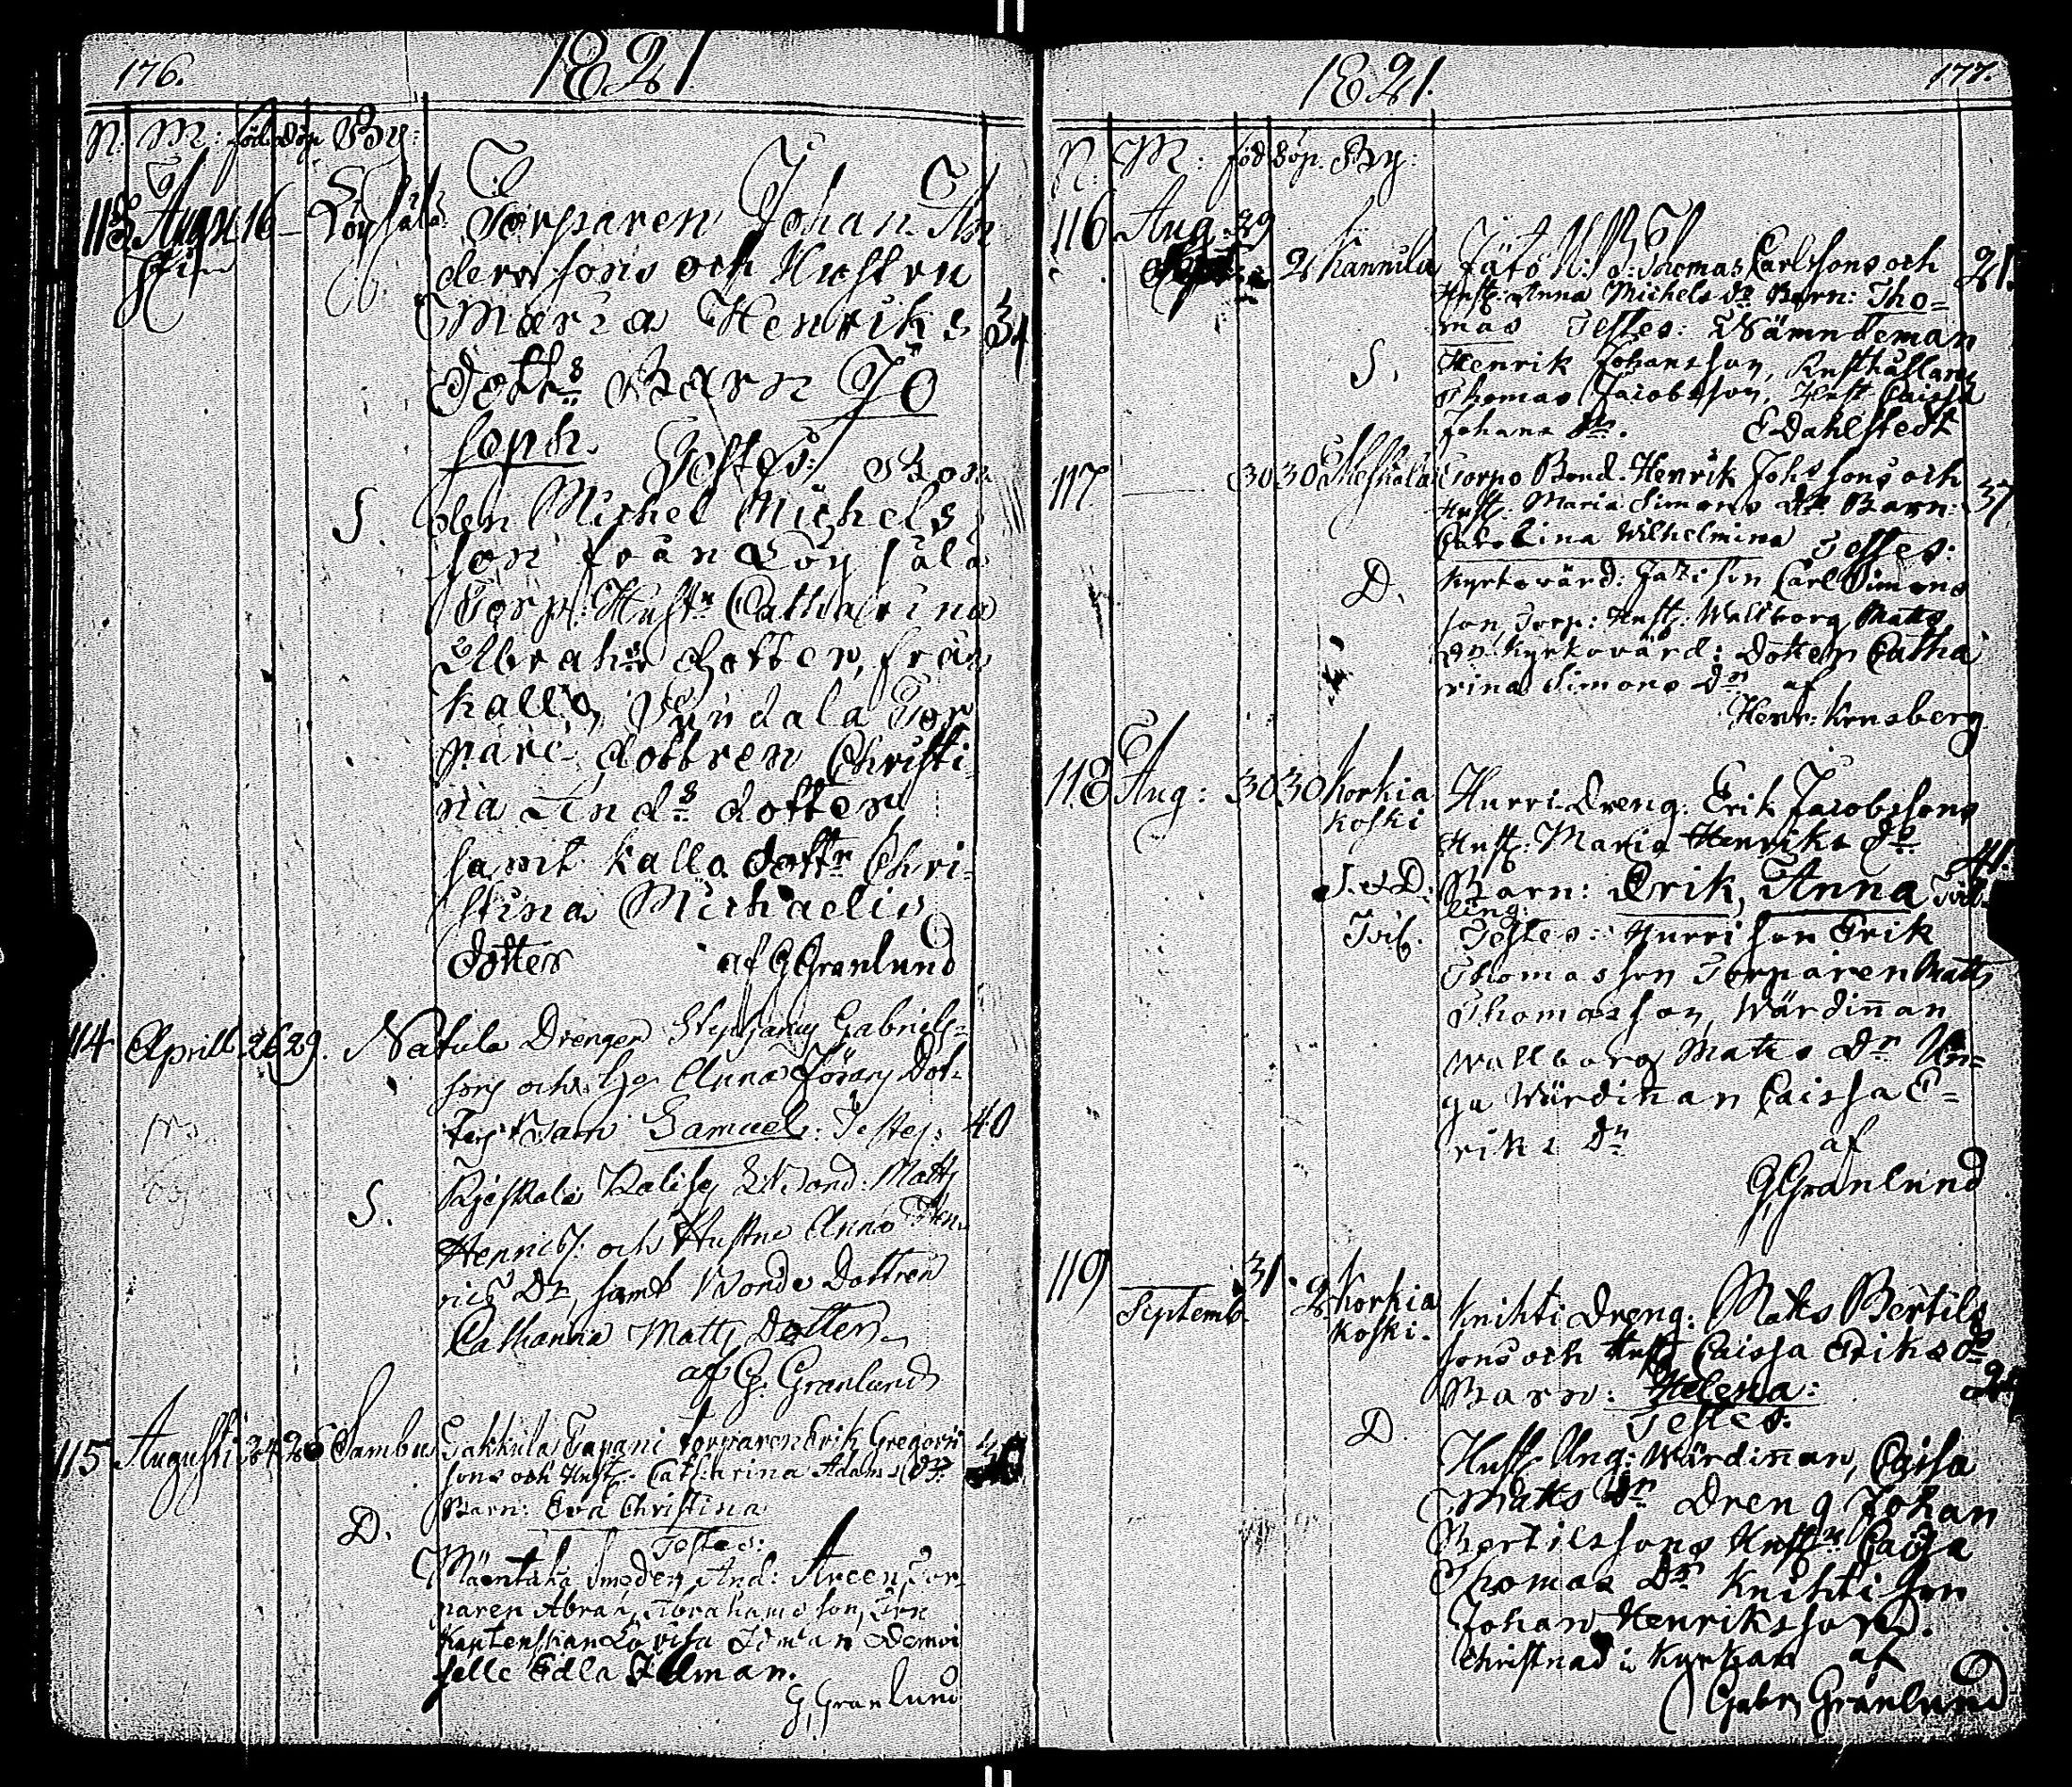 176.
1821.
N: M: föd. döp. By:
113 Augu 16 Torparen Johan An
derssons och Hustru
Maria Henriks
34
Dotts Barn Jo
seph. Testes: Bon
S. den Michel Michels
son från
Torp: Hustr Catharina
Abrahms dotter, från
Kallo, Tor
pare dottren Christi
na And:s dotter
samt Kallo dottr Chri
stina Michaelis
dotter af G Granlund
114 Aprill 26 29. Natula Drengen Gabriels
sons och h: Anna Jörans Dot
ters barn Samuel: Testes: 40
Matts
S. Henrics: och Hustru Anna Hen
rics Dr, samt Bonde Dottren
Catharina Matts Dotter
af G. Granlund
115 Augusti 24 26 Sambu Tapani torparen Erik Gregorii
sons och Hust. Catharina Adams dr.
Barn: Eva Christina
D. Testes:
Smeden And: Areen, Tor
paren Abrah. Abrahamsson, Fru
Kaptenskan Lovisa Idman Demoi
selle Edla Idman.
G. Granlund
177.
1821.
N. M: föd döp. By:
116 Aug: 29
2 Kannila Thomas Carlssons och 21.
Hust: Anna Michels dr Barn: Tho-
mas Testes: Nämndeman
S. Henrik Johansson, Rusthållare
Thomas Jacobsson, Hust Caissa
Johans Dr. E Dahlstedt
117 30 30 Torpo Bond. Henrik Johssons och
Hust: Maria Simons dr Barn: 37
Carolina Wilhelmina Testes:
D. Kyrkovärd: son Carl Simons
son, Torp: Hust: Wallborg Matts
dr Kyrkovärd: Dotter Catha
rina Simons Dr af
Henr: Kensberg
118 Aug: 30 30 Korkia Hurri Dreng: Erik Jacobssons
koski Hust: Maria Henriks dr. 41.
S. & D. Barn: Erik, Anna Tvil
ling:
Tvil. Testes: Hurri son Erik
Thomasson Torparen Matts
Thomasson, Wärdiñan
Wallborg Matts Dr Un-
ga Wärdiñan Caissa E-
riks Dr af
G, Granlund
119 31.
Septemb. 2 Korkia Knihti Dreng: Matts Bertils
koski. sons och Hust Caissa Eriks dr
Barn: Helena:
Testes:
D. Hust Ung: Wärdiñan, Caisa
Matts Dr Dreng Johan
Bertilssons Hustru Caisa
Thomas Dr Knihti son
Johan Henriksson.
Christnad i Kyrkan af
Gabr, Granlund